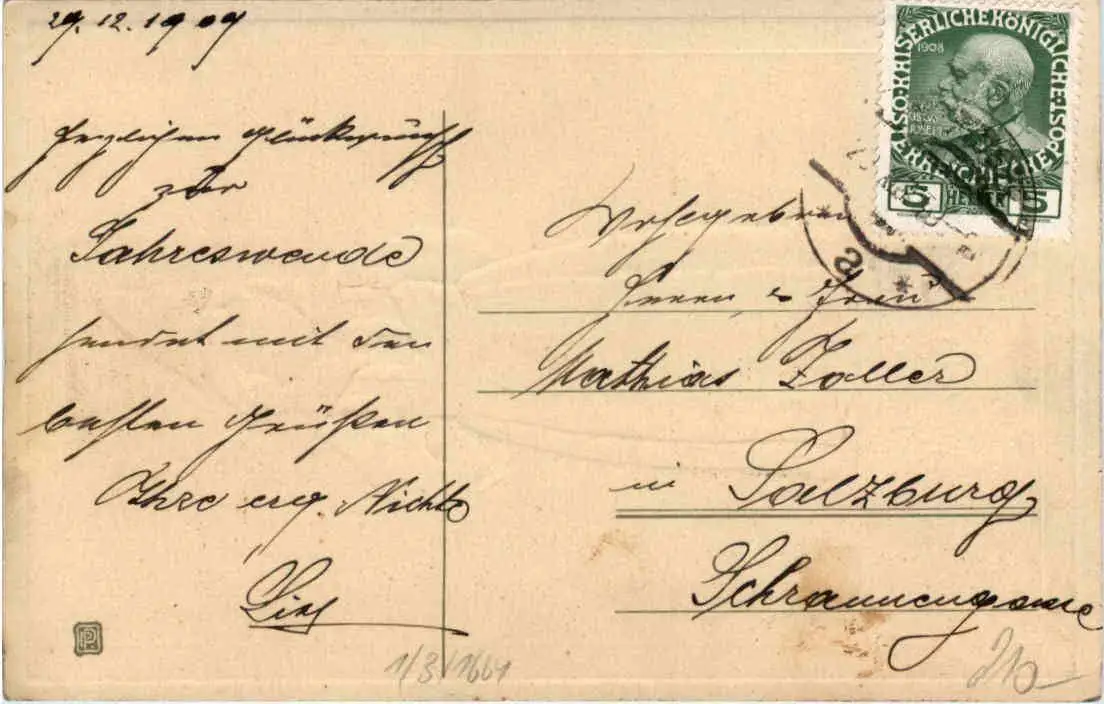 29.12.1909
Herzlichen Glückwunsch
zur
Jahreswende
sendet mit den
besten Grüßen
Ihre erg. Nichte
KAISERLICHE KÖNIGLICHE
ÖSTERREICHISCHE POST
1908
5 HELLER 5
Wohlgeboren
Herrn & Frau
Mathias Zaller
in Salzburg
Schrannengasse
1/3/1664